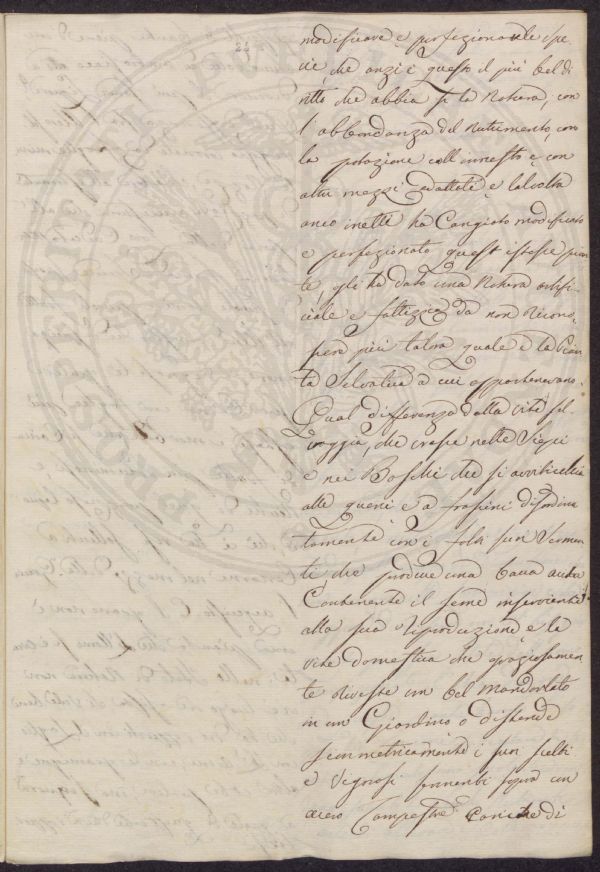 24
modificare e perfezionare le spe
cie, che anzi è questo il più bel di
ritto che abbia la Natura, con
l'abbondanza del nutrimento, con
la potazione coll'innesto e con
altri mezzi adattati e talvolta
anco inetti ha Cangiato modificato
e perfezionato quest'istesse pian
te, gli ha dato una Natura artifi
ciale e fattizia da non ricono
scere più talora quale è la Pian
ta Selvatica a cui appartenevano.
Qual differenza dalla vite sel
vaggia, che cresce nelle Siepi
e nei Boschi che si avviticchia
alle querci e a frassini disordina
tamente con i folti suoi Sermen
ti, che produce una bacca
Contenente il seme inserviente
alla sua riproduzione e la
vite domestica che graziosamen
te riveste un bel mandorlato
in un Giardino o distende
simmetricamente i suoi scelti
e vigorosi sermenti sopra un
Campestre di